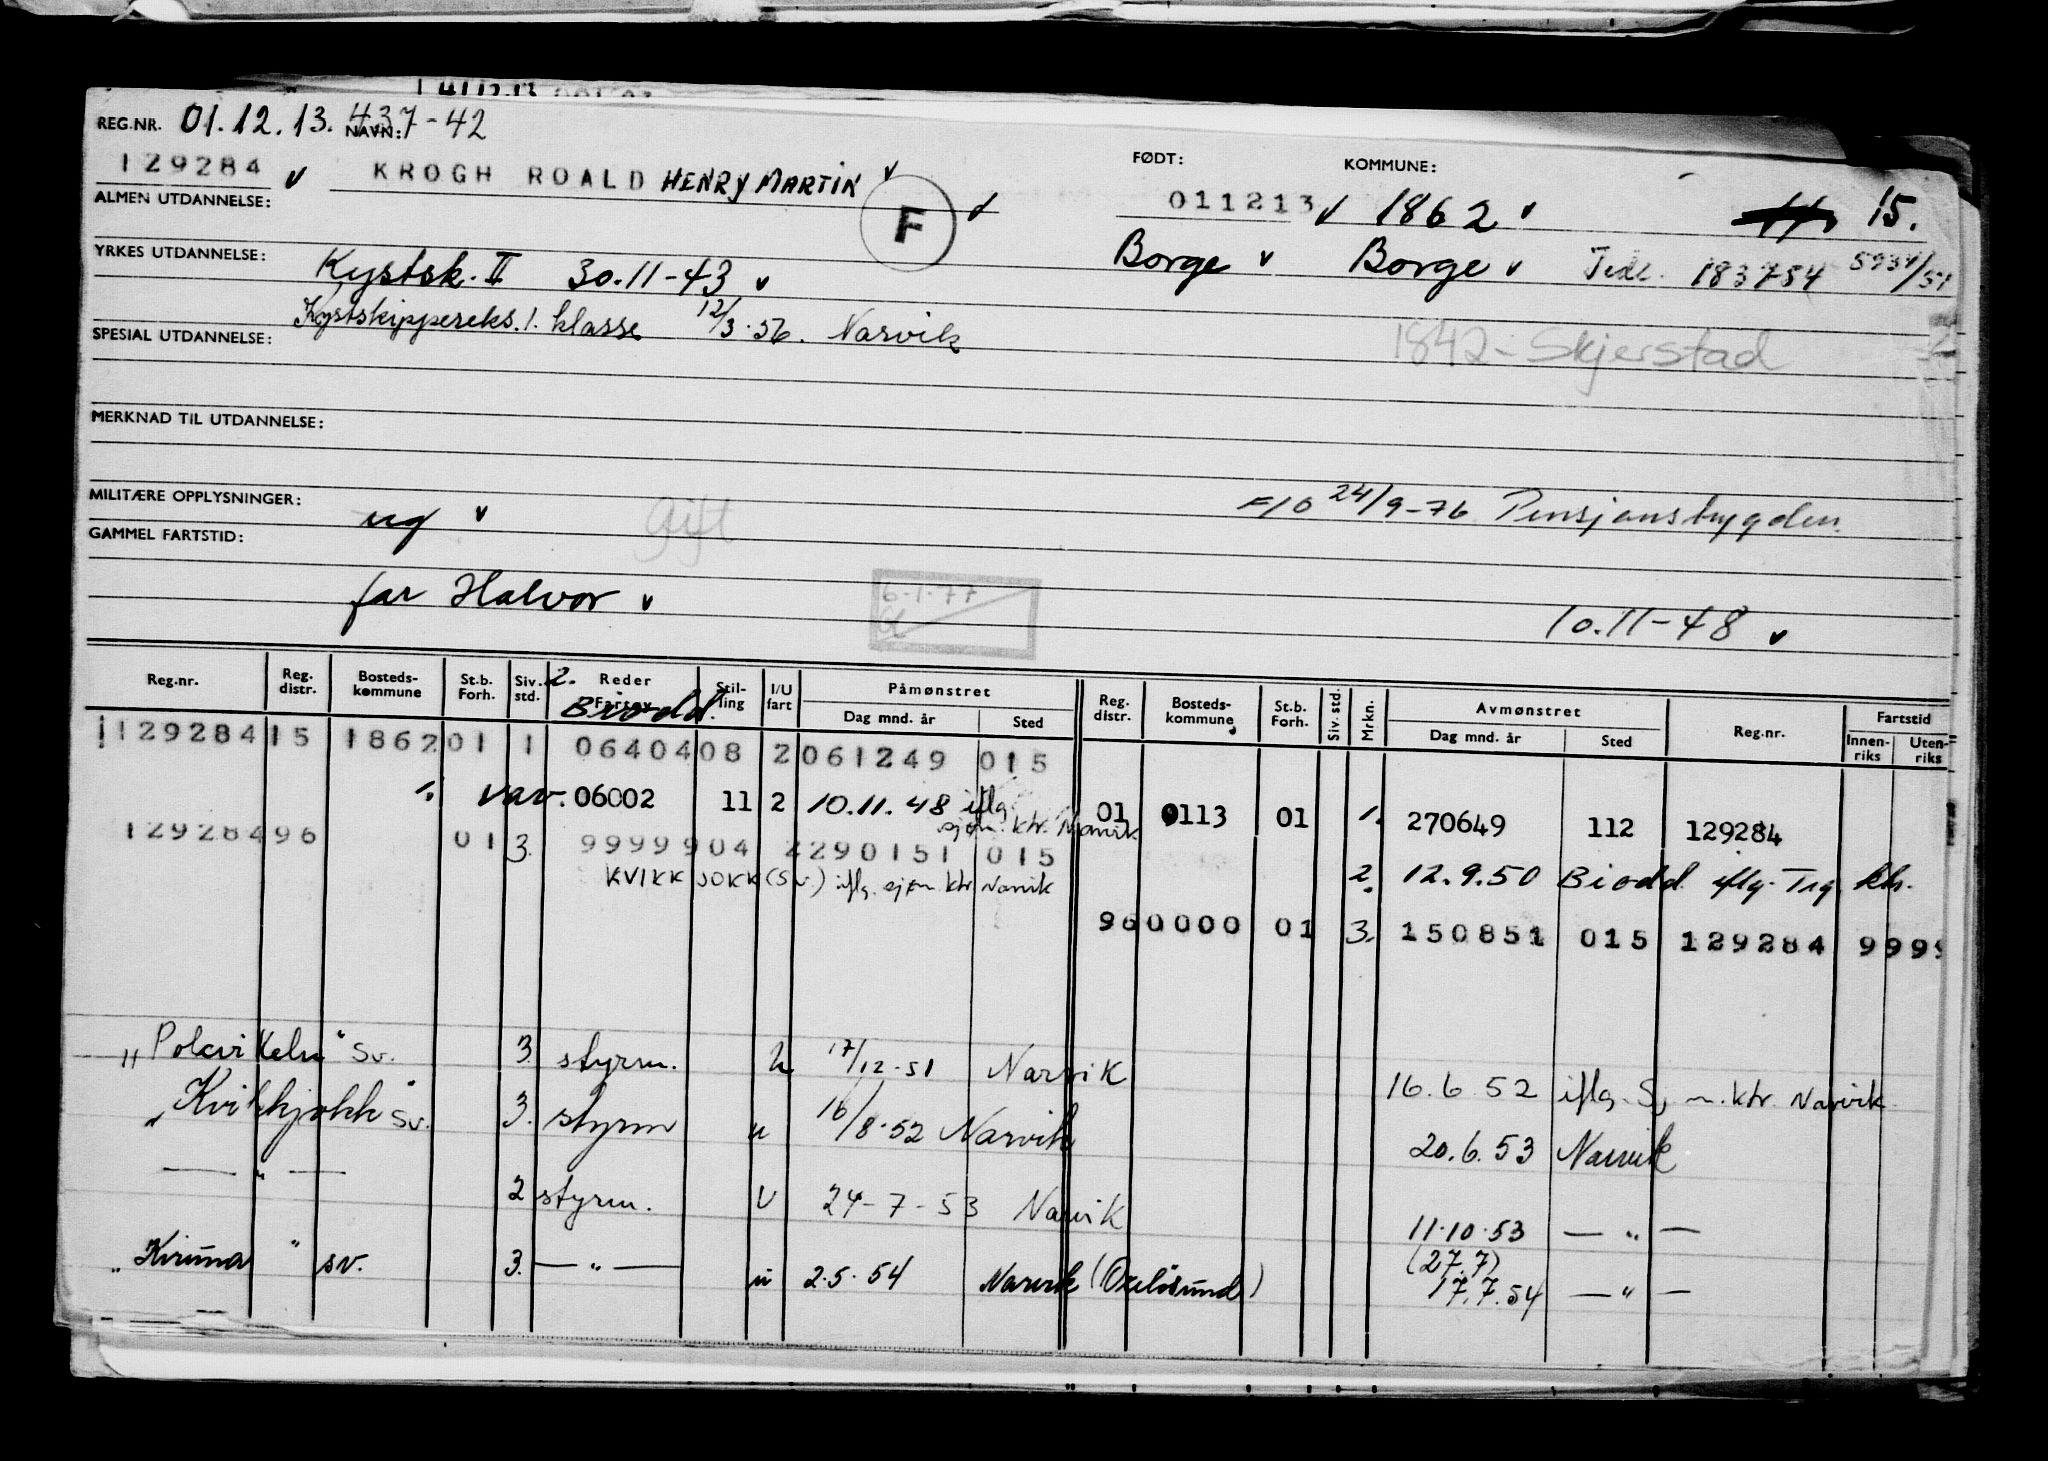 REG.NR. 01.12.13.437-42
NAVN:
129284 v KROGH ROALD HENRY MARTIN v
F
FØDT: KOMMUNE:
011213 v 1862 v 15.
ALMEN UTDANNELSE:
Borge v Borge v 183754 5934/51
YRKES UTDANNELSE: Kystsk. II 30.11-43 v
Kystskippereks. 1. klasse 12/3.56. Narvik
1842 - Skjerstad
SPESIAL UTDANNELSE:
MERKNAD TIL UTDANNELSE:
MILITÆRE OPPLYSNINGER: ug v Gift
F/O 24/9-76 Pensjonstrygden.
GAMMEL FARTSTID:
far Halvor v
6.1.77
10.11-48 v
Reg.nr. Reg. distr. Bosteds-kommune St.b. Forh. Siv. std. 2. Reder Fartøy Stil-ling I/U fart Påmønstret Dag mnd. år Sted Reg. distr. Bosteds-kommune St.b. Forh. Siv. std. Mrkn. Avmønstret Dag mnd. år Sted Reg.nr. Fartstid Innen-riks Uten-riks
Biodd.
129284 15 1862 01 1 06404 08 2 061249 015
1. var. 06002 11 2 10.11.48 iflg. sjøm. ktr. Narvik 01 0113 01 1. 270649 112 129284
129284 96 01 3. 99999 04 2 290151 015
KVIKKJOKK (Sv.) iflg. sjøm. ktr Narvik
2. 12.9.50 Biodd iflg. Trg. kh.
96 0000 01 3. 150851 015 129284 999
"Polcirkeln" Sv. 3. styrm. u 17/12.51 Narvik 16.6.52 iflg. Sjøm. ktr. Narvik
"Kvikkjokk" Sv. 3. styrm u 16/8.52 Narvik 20.6.53 Narvik
— " — 2 styrm. U 24-7-53 Narvik 11.10.53 — " —
(27.7)
"Kiruna" sv. 3. — " — u 2.5.54 Narvik (Oxelösund) 17.7.54 — " —